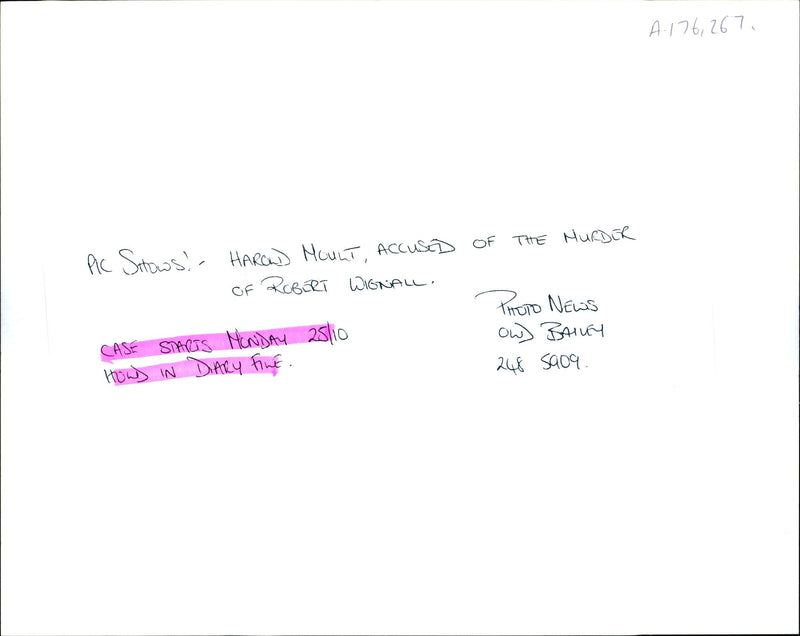 A.176,267.
PIC SHOWS:- HAROLD MOULT, ACCUSED OF THE MURDER
OF ROBERT WIGNALL.
PHOTO NEWS
OLD BAILEY
248 5909.
CASE STARTS MONDAY 25/10
HOLD IN DIARY FILE.